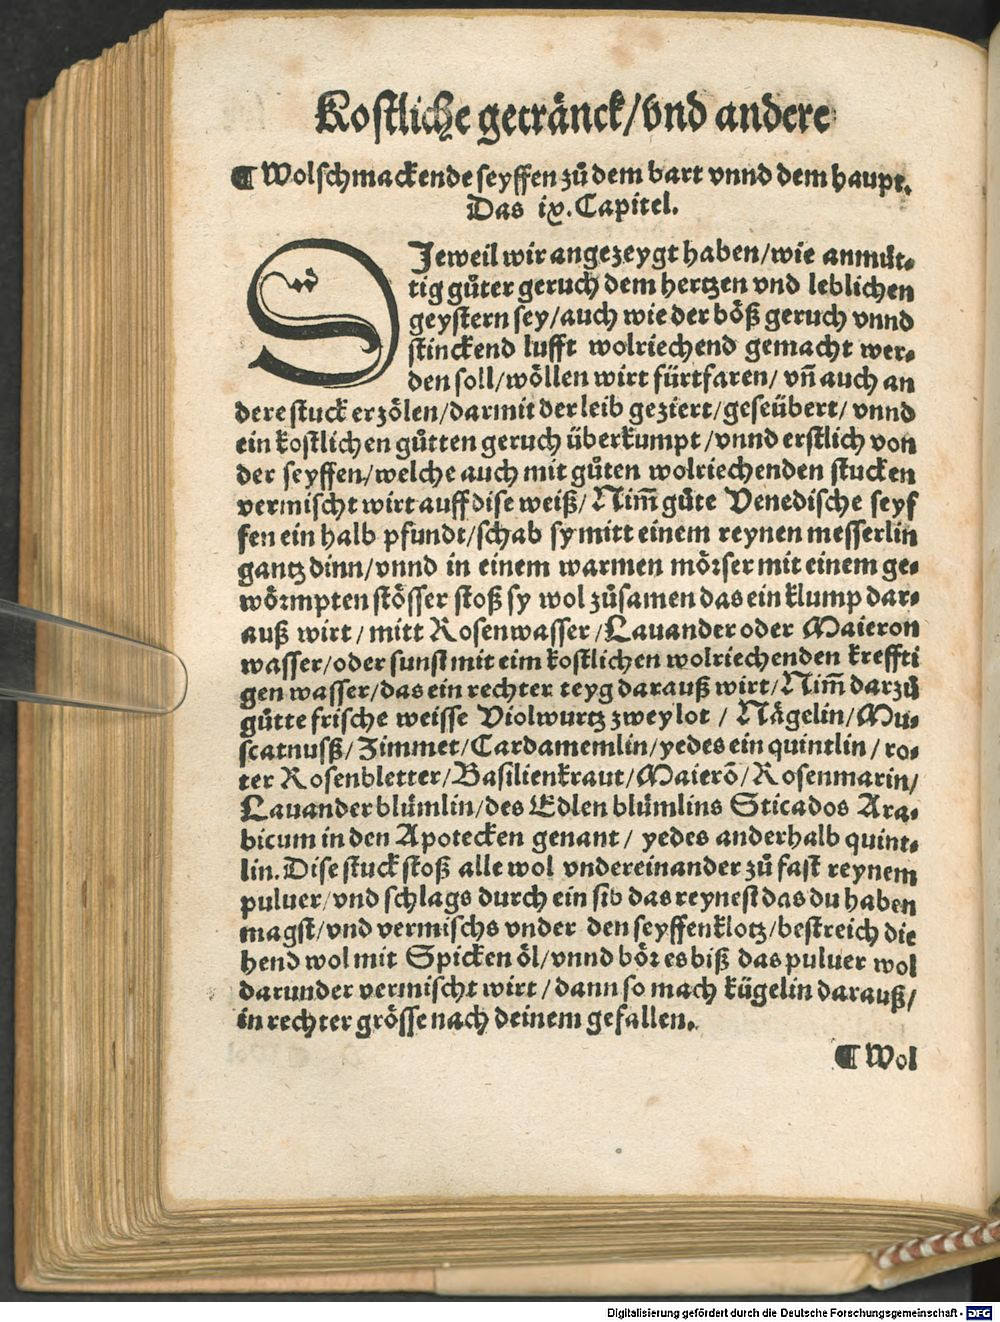 Kostliche getränck/vnd andere
¶ Wolschmackende seyffen zů dem bart vnnd dem haupt.
Das ix. Capitel.
DJeweil wir angezeygt haben/wie anmüt-
tig gůter geruch dem hertzen vnd leblichen
geystern sey/auch wie der böß geruch vnnd
stinckend lufft wolriechend gemacht wer-
den soll/wöllen wirt fürtfaren/ vñ auch an
dere stuck erzölen/darmit der leib geziert/geseübert/ vnnd
ein kostlichen gůtten geruch überkumpt/vnnd erstlich von
der seyffen/welche auch mit gůten wolriechenden stucken
vermischt wirt auff dise weiß/Nim̃ gůte Venedische seyf
fen ein halb pfundt/schab sy mitt einem reynen messerlin
gantz dinn/vnnd in einem warmen mörser mit einem ge-
wörmpten stösser stoß sy wol zůsamen das ein klump dar-
auß wirt/mitt Rosenwasser/Lauander oder Maieron
wasser/oder sunst mit eim kostlichen wolriechenden kreffti
gen wasser/das ein rechter teyg darauß wirt/Nim̃ darzů
gůtte frische weisse Violwurtz zwey lot / Nägelin/Mu-
scatnusß/Zimmet/Cardamemlin/yedes ein quintlin/ ro-
ter Rosenbletter/Basilienkraut/Maierō/Rosenmarin/
Lauander blümlin/des Edlen blümlins Sticados Ara-
bicum in den Apotecken genant/ yedes anderhalb quint-
lin. Dise stuck stoß alle wol vndereinander zů fast reynem
puluer/vnd schlags durch ein sib das reynest das du haben
magst/vnd vermischs vnder den seyffenklotz/bestreich die
hend wol mit Spicken öl/vnnd bör es biß das puluer wol
darunder vermischt wirt/dann so mach kügelin darauß/
in rechter grösse nach deinem gefallen.
¶ Wol
Digitalisierung gefördert durch die Deutsche Forschungsgemeinschaft - DFG